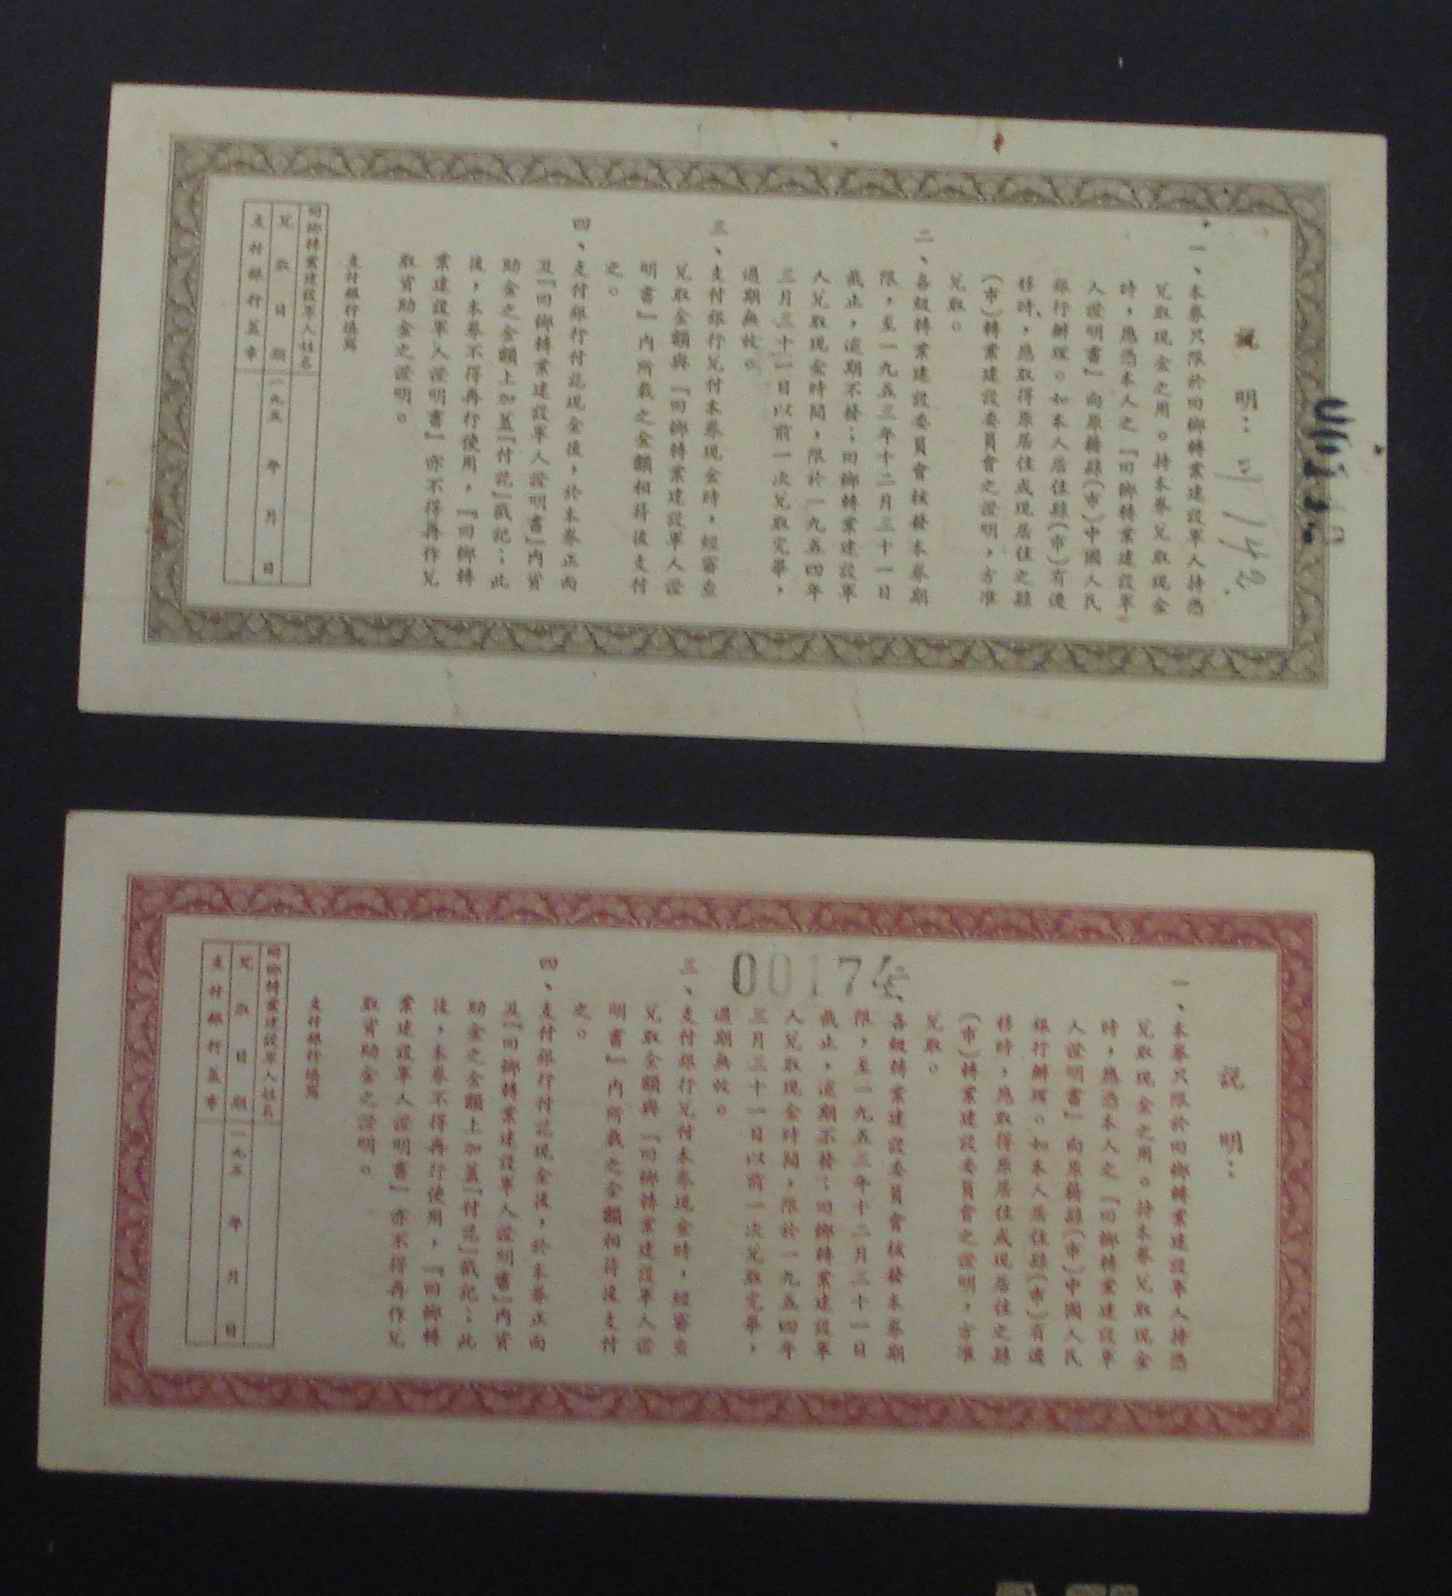 說明：
一、本券只限於回鄉轉業建設軍人持憑
兌取現金之用。持本券兌取現金
時，應憑本人之『回鄉轉業建設軍
人證明書』向原籍縣（市）中國人民
銀行辦理。如本人居住縣（市）有遷
移時，應取得原居住或現居住之縣
（市）轉業建設委員會之證明，方准
兌取。
二、各級轉業建設委員會核發本券期
限，至一九五三年十二月三十一日
截止，逾期不發；回鄉轉業建設軍
人兌取現金時間，限於一九五四年
三月三十一日以前一次兌取完畢，
過期無效。
三、支付銀行兌付本券現金時，經審查
兌取金額與『回鄉轉業建設軍人證
明書』內所載之金額相符後支付
之。
四、支付銀行付訖現金後，於本券正面
及『回鄉轉業建設軍人證明書』內資
助金之金額上加蓋『付訖』戳記；此
後，本券不得再行使用，『回鄉轉
業建設軍人證明書』亦不得再作兌
取資助金之證明。
支付銀行填寫
回鄉轉業建設軍人姓名
兌取日期 一九五 年 月 日
支付銀行蓋章
說明：
一、本券只限於回鄉轉業建設軍人持憑
兌取現金之用。持本券兌取現金
時，應憑本人之『回鄉轉業建設軍
人證明書』向原籍縣（市）中國人民
銀行辦理。如本人居住縣（市）有遷
移時，應取得原居住或現居住之縣
（市）轉業建設委員會之證明，方准
兌取。
0017
各級轉業建設委員會核發本券期
限，至一九五三年十二月三十一日
截止，逾期不發；回鄉轉業建設軍
人兌取現金時間，限於一九五四年
三月三十一日以前一次兌取完畢，
過期無效。
三、支付銀行兌付本券現金時，經審查
兌取金額與『回鄉轉業建設軍人證
明書』內所載之金額相符後支付
之。
四、支付銀行付訖現金後，於本券正面
及『回鄉轉業建設軍人證明書』內資
助金之金額上加蓋『付訖』戳記；此
後，本券不得再行使用，『回鄉轉
業建設軍人證明書』亦不得再作兌
取資助金之證明。
支付銀行填寫
回鄉轉業建設軍人姓名
兌取日期 一九五 年 月 日
支付銀行蓋章